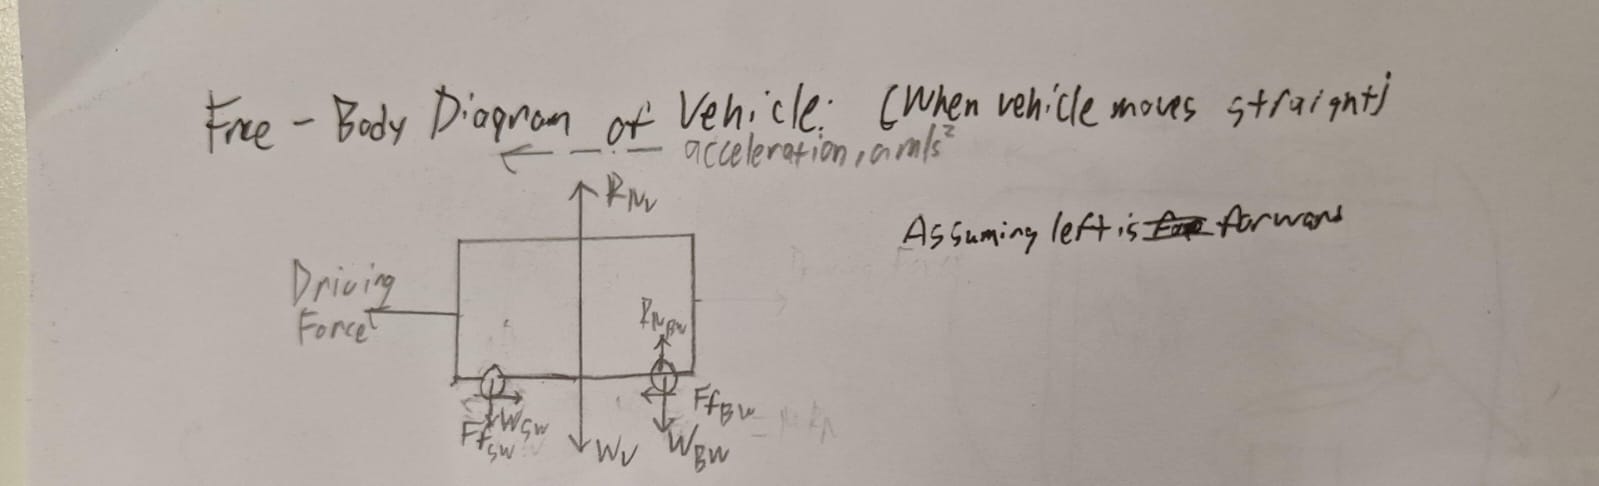 Free-Body Diagram of Vehicle: (When vehicle moves straight)
acceleration, a m/s²
R_Nv
Assuming left is forward
Driving
Force
R_NBW
Ff_BW
W_SW
Ff_SW
W_V
W_BW